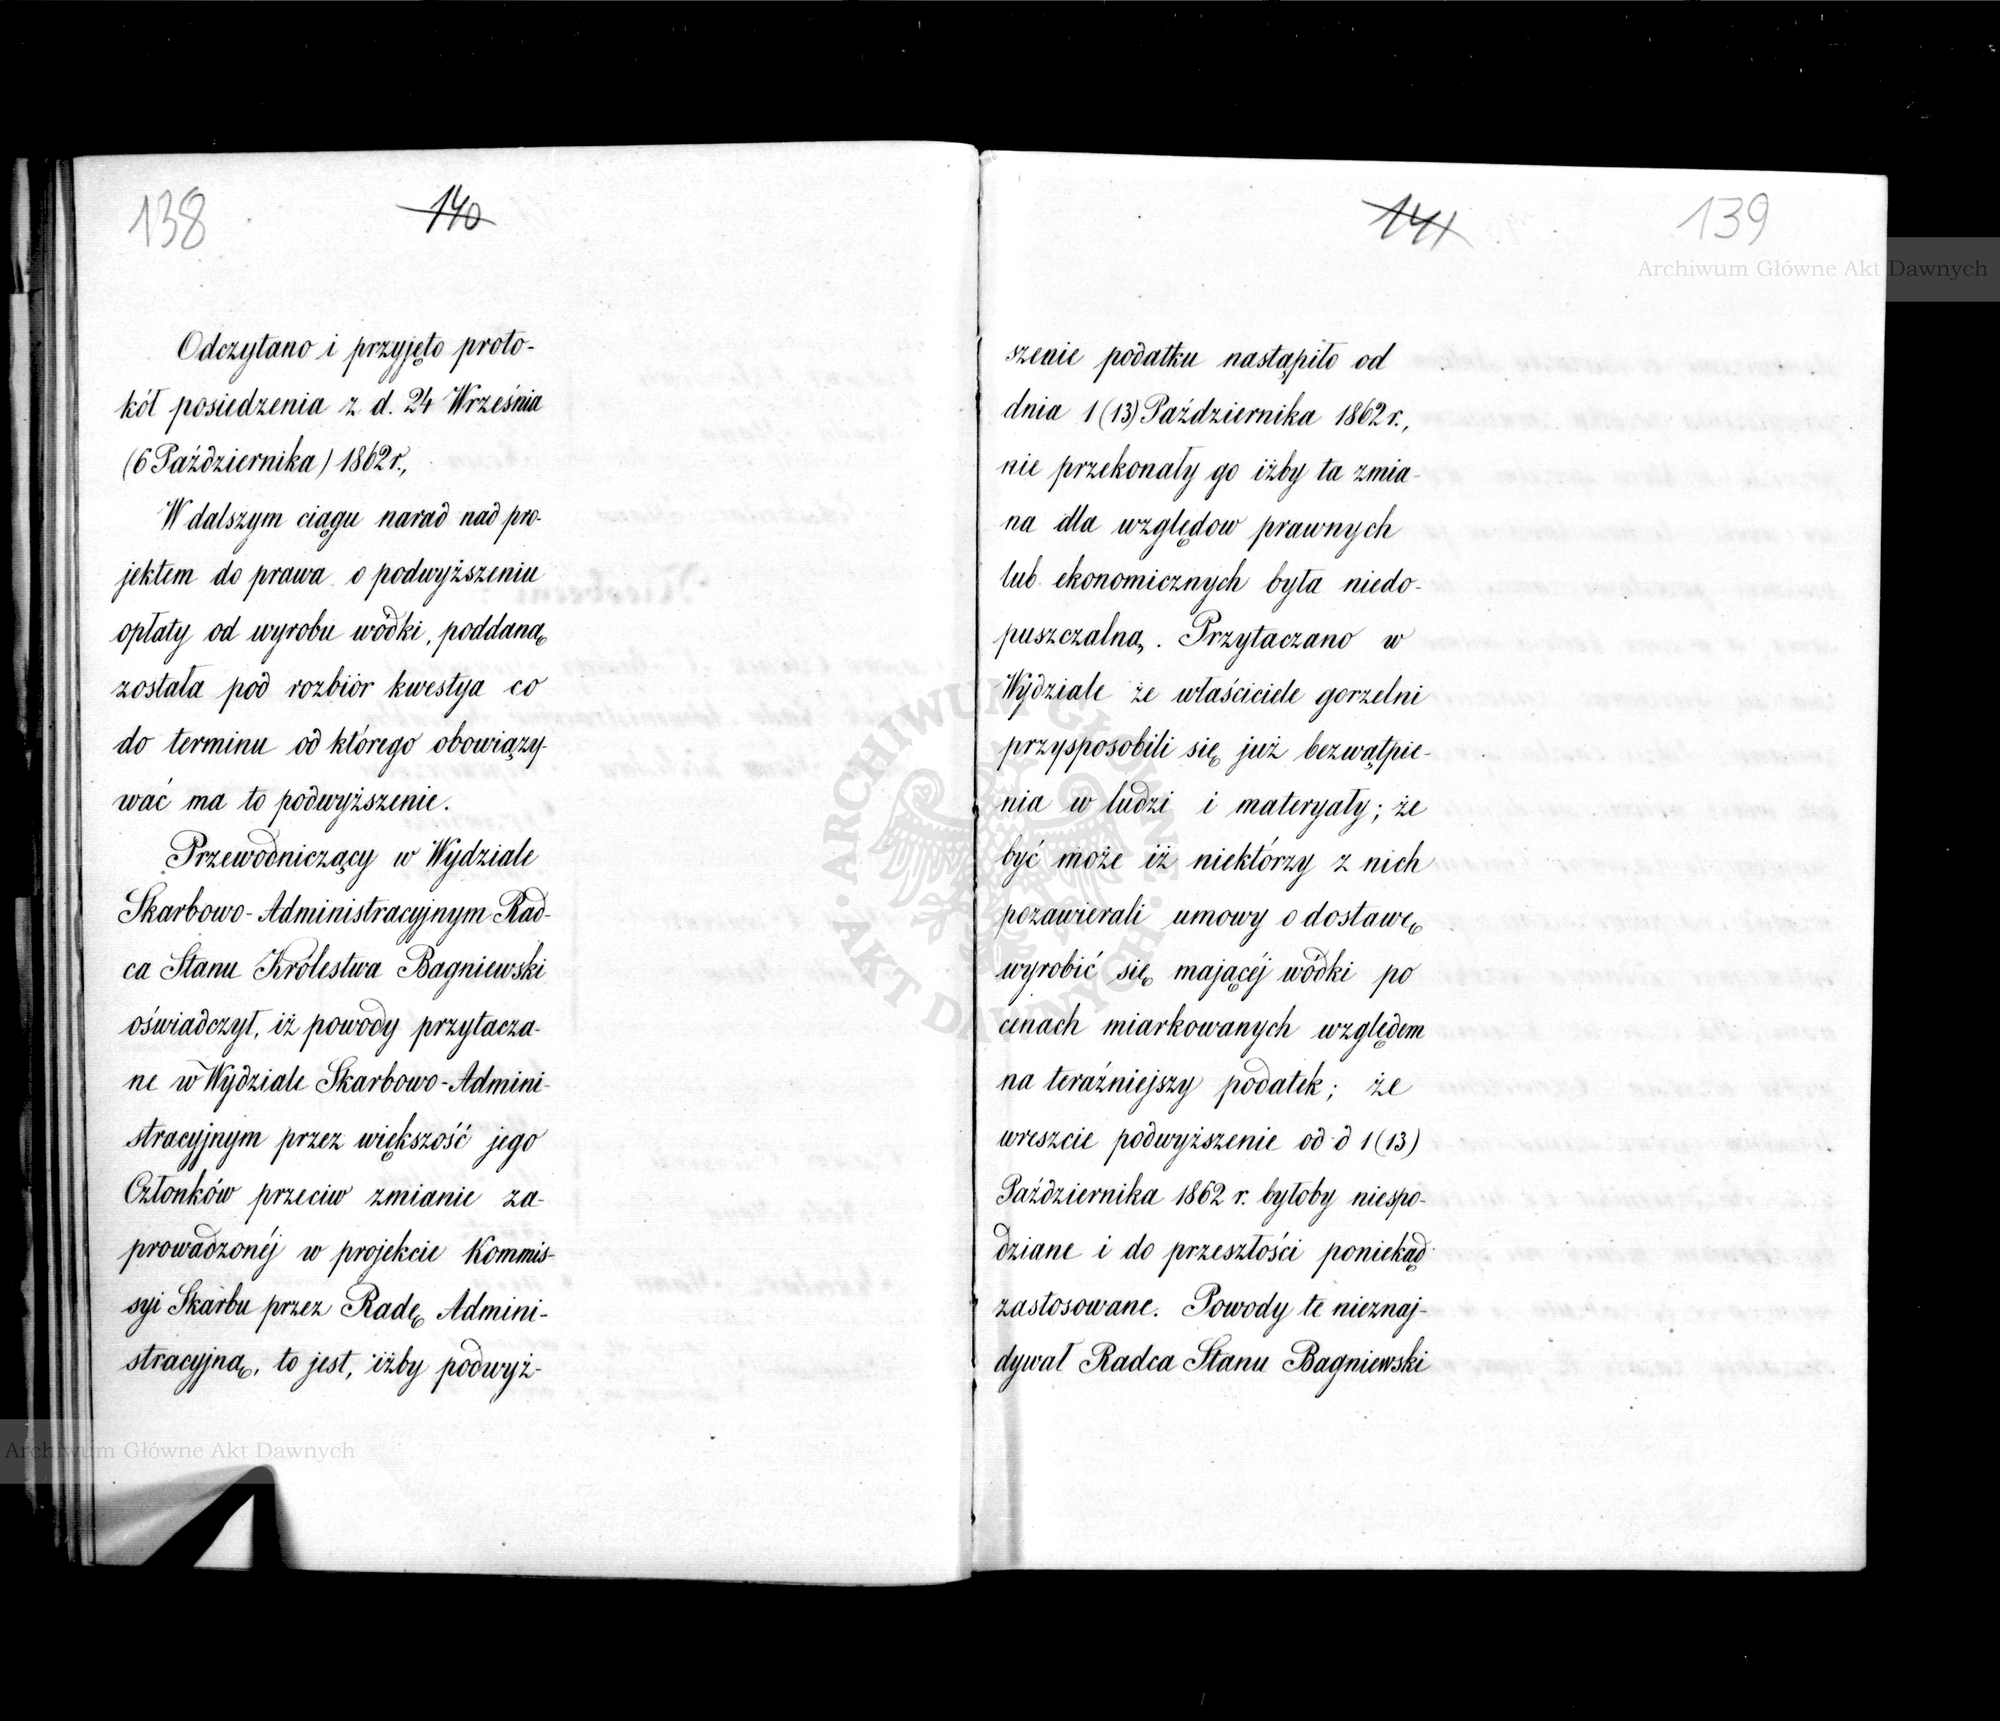 138
140
Odczytano i przyjęto proto-
kół posiedzenia z d. 24 Września
(6 Października) 1862 r.,
W dalszym ciągu narad nad pro-
jektem do prawa o podwyższeniu
opłaty od wyrobu wódki, poddaną
została pod rozbiór kwestya co
do terminu od którego obowiązy-
wać ma to podwyższenie.
Przewodniczący w Wydziale
Skarbowo-Administracyjnym Rad-
ca Stanu Królestwa Bagniewski
oświadczył, iż powody przytacza-
ne w Wydziale Skarbowo-Admini-
stracyjnym przez większość jego
Członków przeciw zmianie za-
prowadzonéj w projekcie Kommis-
syi Skarbu przez Radę Admini-
stracyjną, to jest, iżby podwyż-
141
139
szenie podatku nastąpiło od
dnia 1 (13) Października 1862 r.,
nie przekonały go iżby ta zmia-
na dla względow prawnych
lub ekonomicznych była niedo-
puszczalną. Przytaczano w
Wydziale że właściciele gorzelni
przysposobili się już bezwątpie-
nia w ludzi i materyały; że
być może iż niektórzy z nich
pozawierali umowy o dostawę
wyrobić się mającéj wódki po
cenach miarkowanych względem
na teraźniejszy podatek; że
wreszcie podwyższenie od d 1 (13)
Października 1862 r. byłoby niespo-
dziane i do przeszłości poniekąd
zastosowane. Powody te nieznaj-
dywał Radca Stanu Bagniewski
Archiwum Główne Akt Dawnych
Archiwum Główne Akt Dawnych
ARCHIWUM GŁÓWNE AKT DAWNYCH